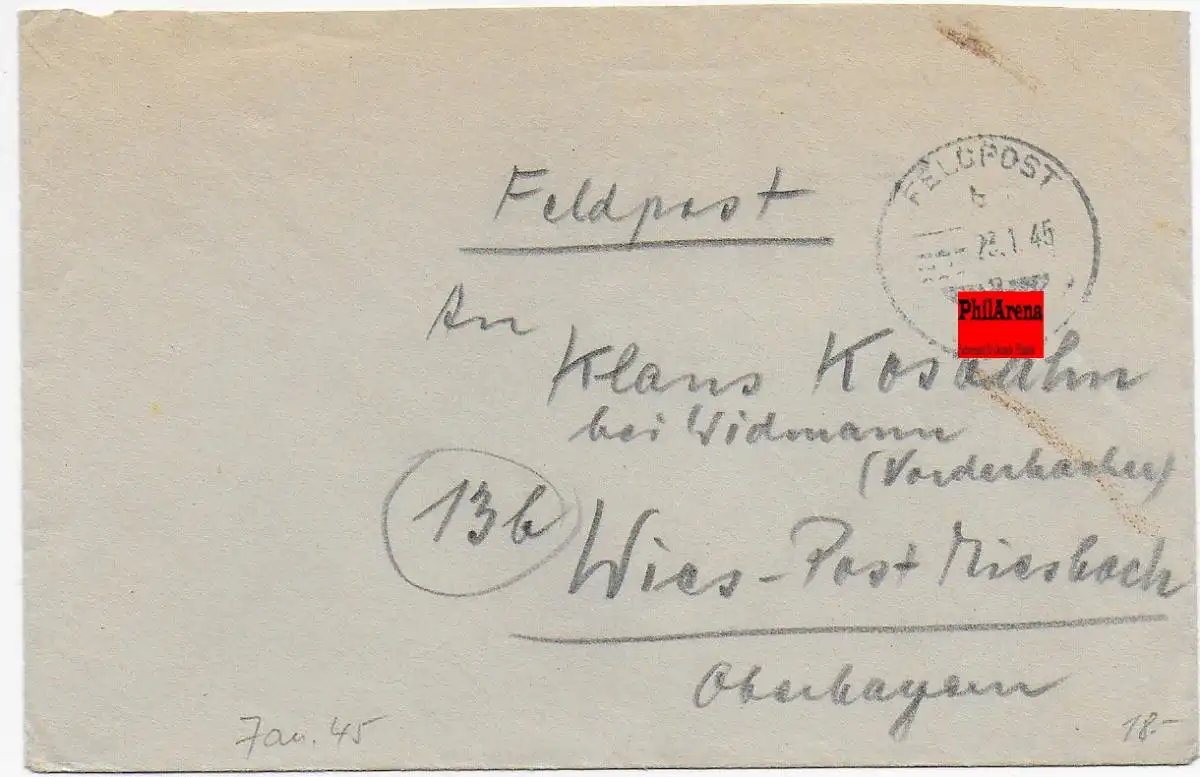 Feldpost
FELDPOST
b
23.1.45
PhilArena
An
Klaus
bei Widmann
(Vorderhacker)
13b
Wies-Post Miesbach
Oberbayern
Jan. 45
18.-